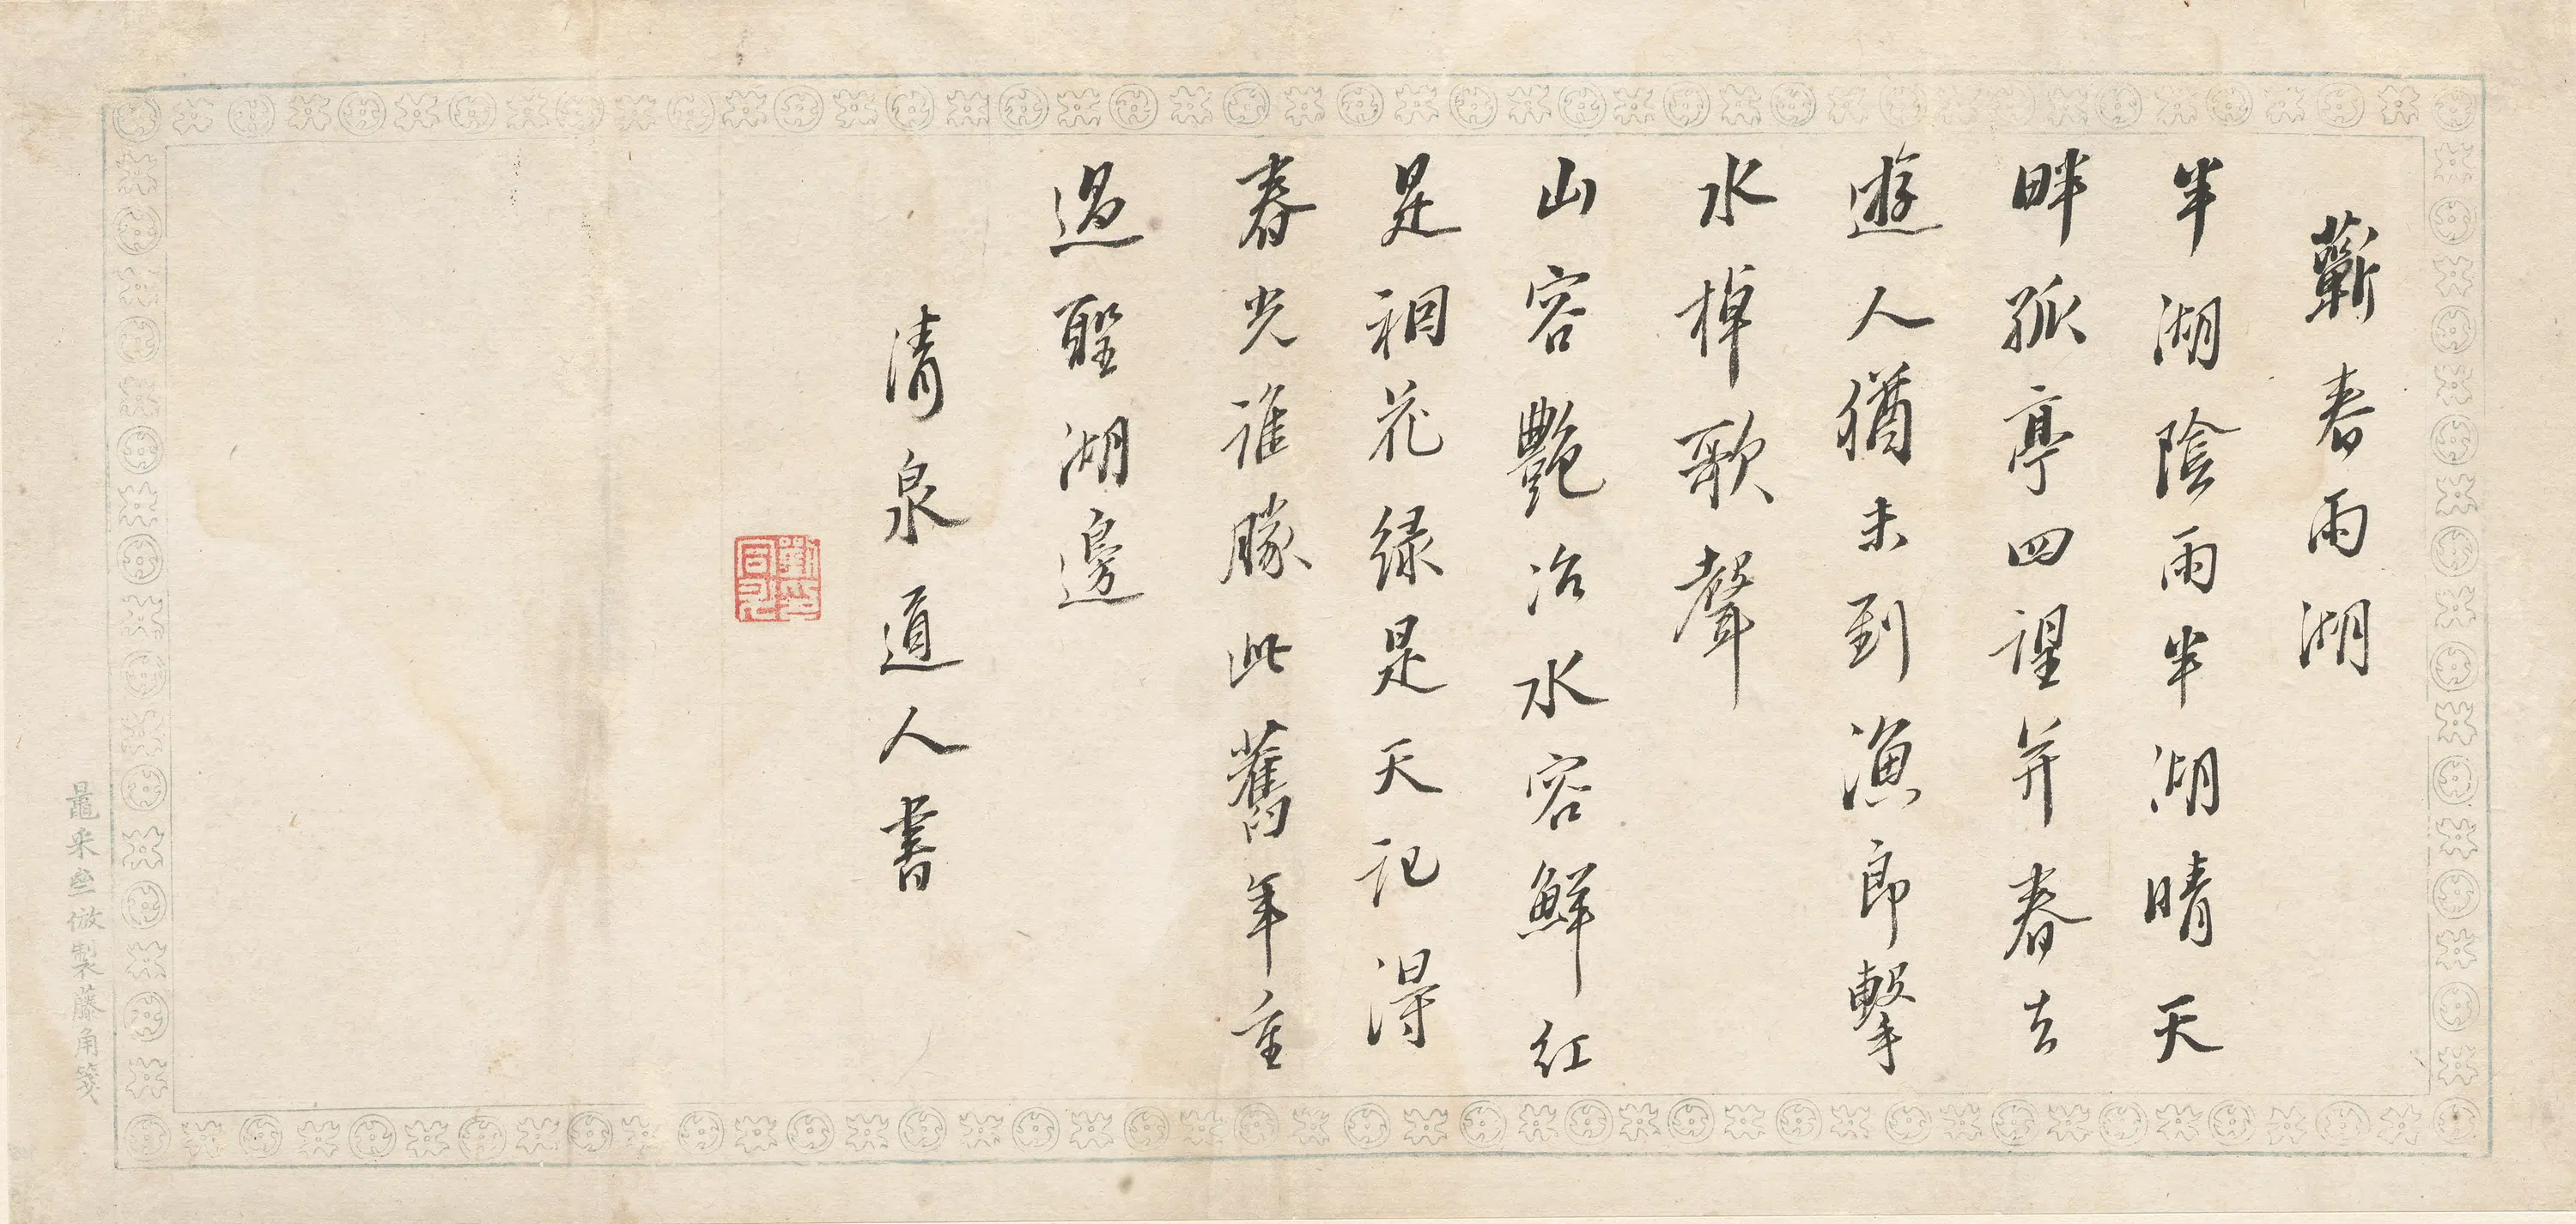 蘄春雨湖
半湖陰雨半湖晴天
畔孤亭四望并春去
遊人猶未到漁郎擊
水棹歌聲
山容艷冶水容鮮紅
是桐花緑是天記得
春光誰勝此舊年重
過聖湖邊
清泉道人書
倣製藤角箋